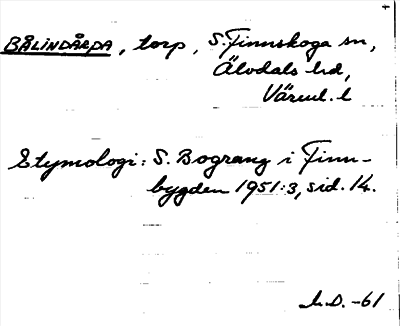 BÅLINDÅRDA, torp, S. Finnskoga sn,
Älvdals hd,
Värml. l
Etymologi: S. Bograng i Finn-
bygden 1951:3, sid. 14.
L.D. -61